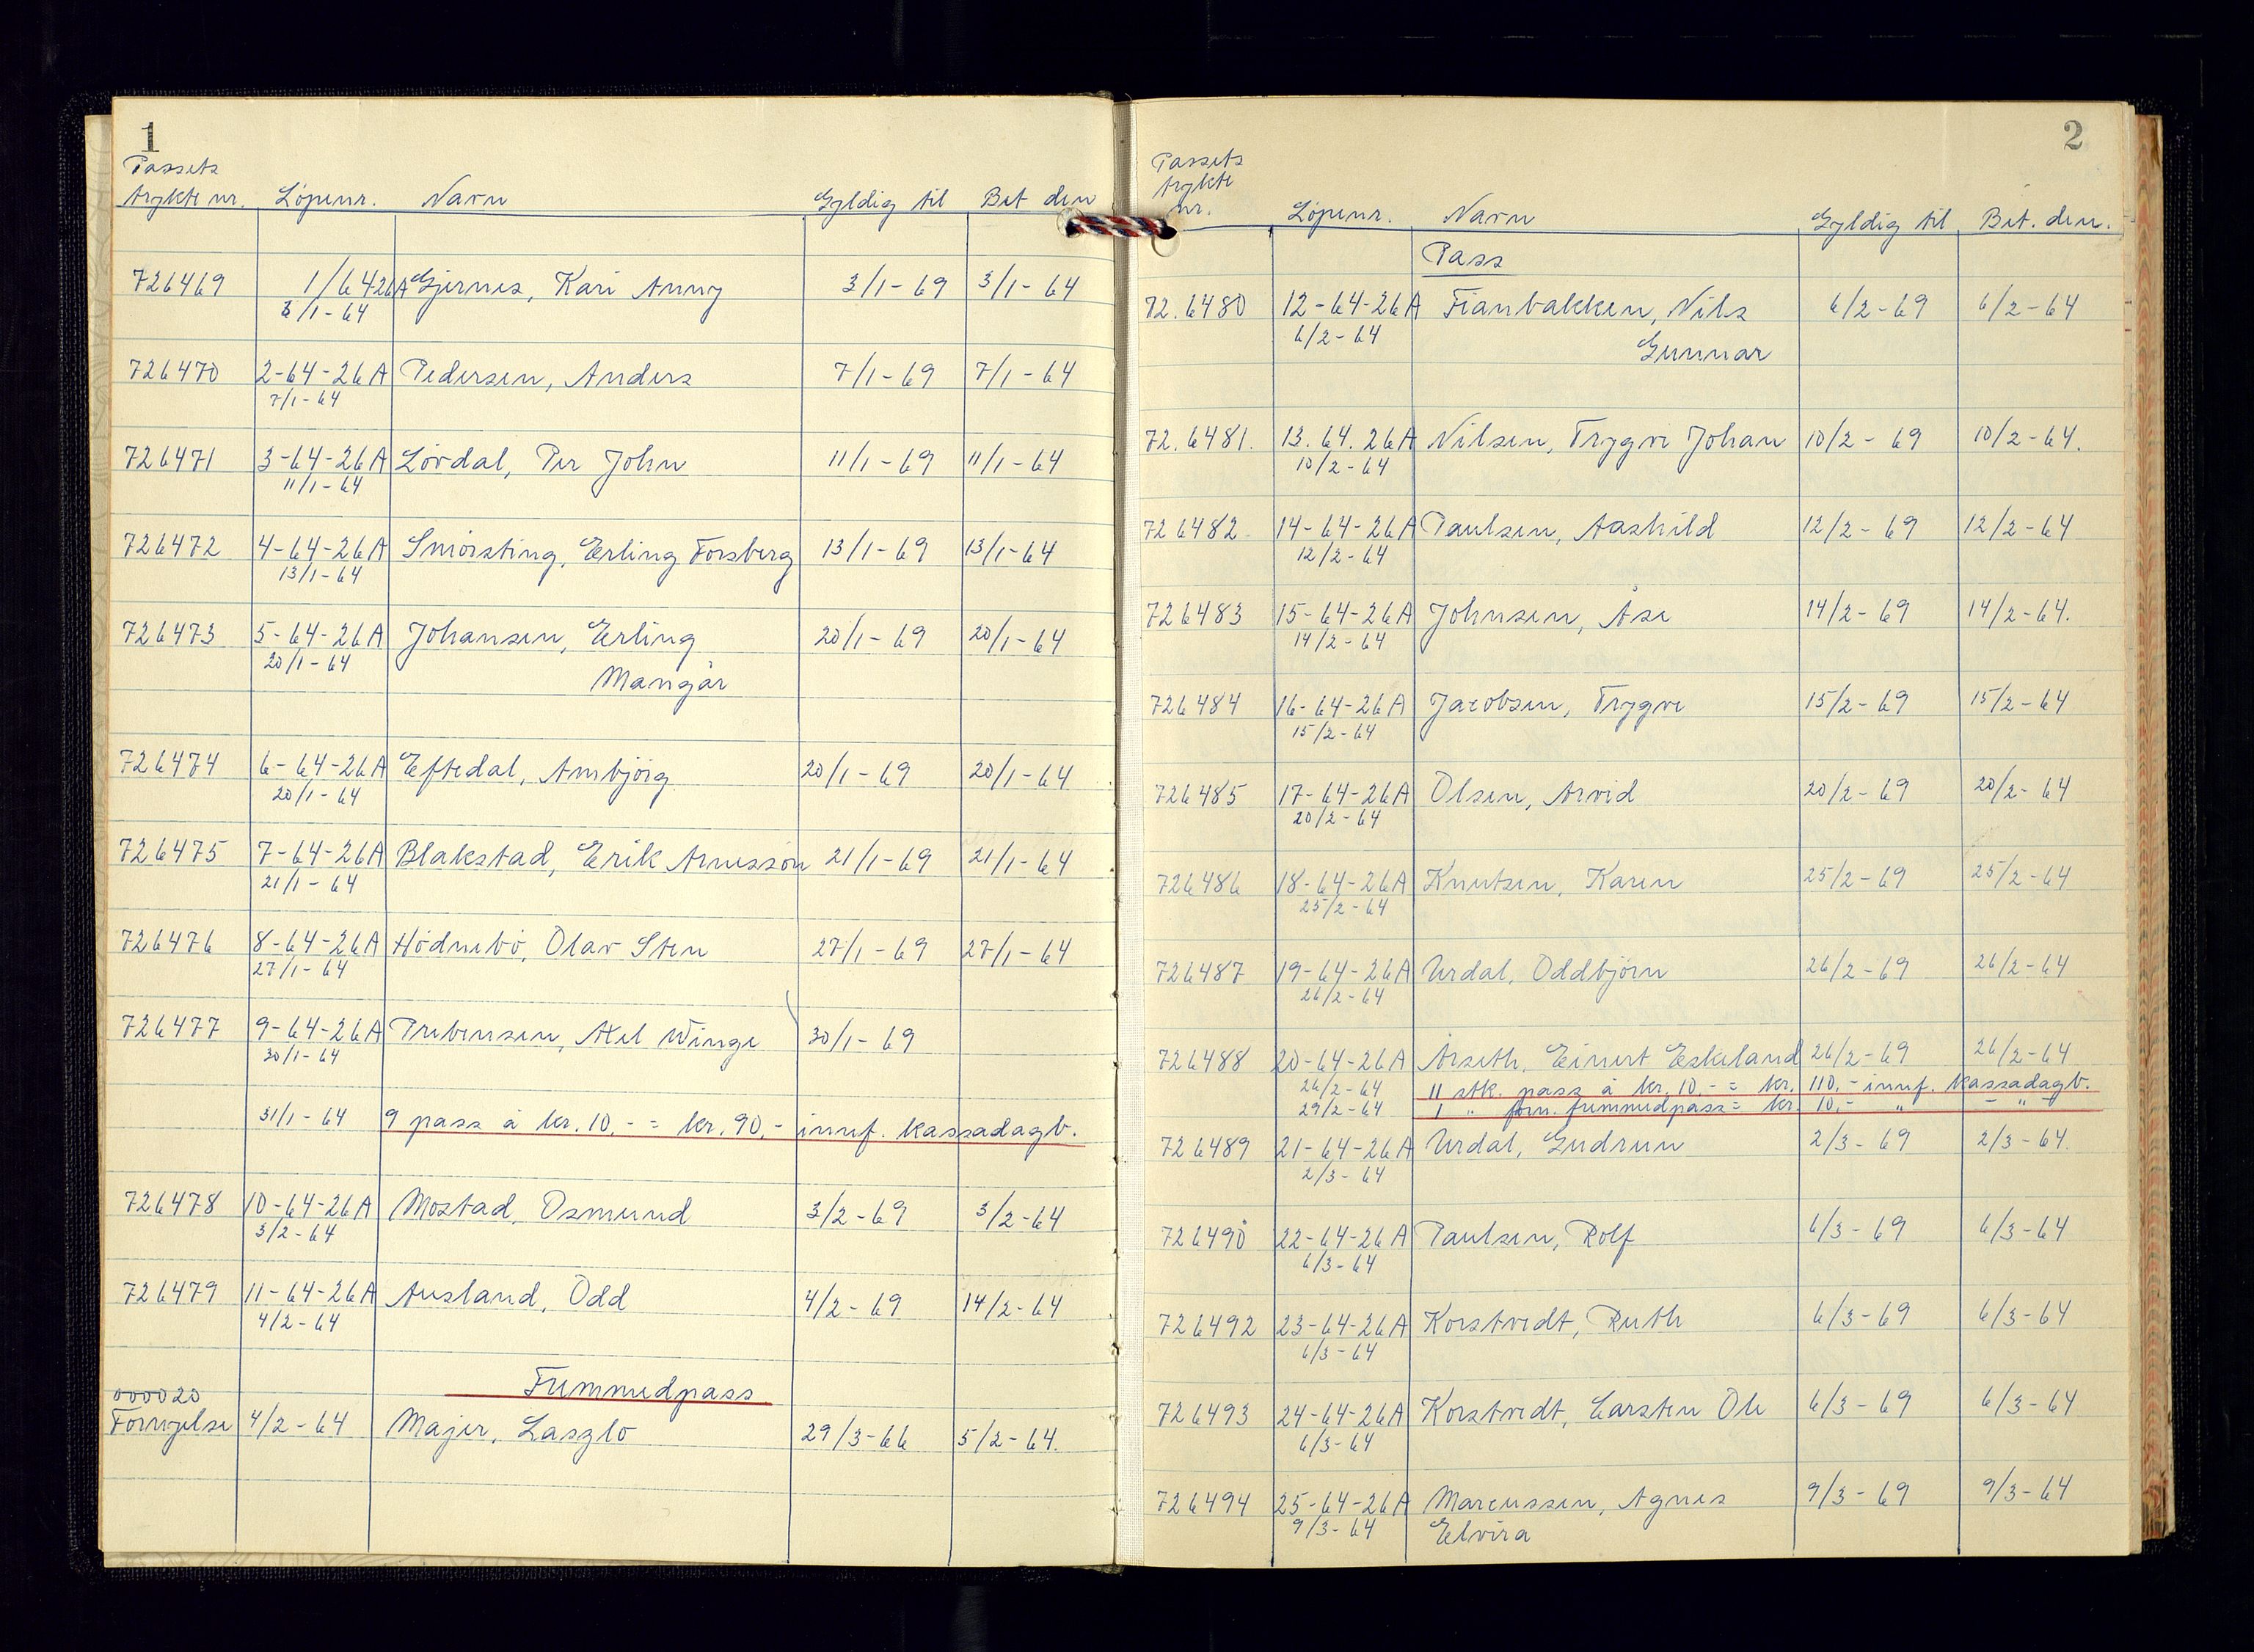 1
Passets
trykte nr. Löpenr. Navn Gyldig til Bet den
726469 1/64 26A Gjernes, Kari Anny 3/1-69 3/1-64
3/1-64
726470 2-64-26A Pedersen, Anders 7/1-69 7/1-64
7/1-64
726471 3-64-26A Lövdal, Per John 11/1-69 11/1-64
11/1-64
726472 4-64-26A Smörsting, Erling Forsberg 13/1-69 13/1-64
13/1-64
726473 5-64-26A Johansen, Erling 20/1-69 20/1-64
20/1-64 Mangår
726474 6-64-26A Eftedal, Ambjörg 20/1-69 20/1-64
20/1-64
726475 7-64-26A Blakstad, Erik Arnessön 21/1-69 21/1-64
21/1-64
726476 8-64-26A Hödnebö, Olav Sten 27/1-69 27/1-64
27/1-64
726477 9-64-26A Prebensen, Axel Winge 30/1-69
30/1-64
31/1-64 9 pass à kr. 10,- = kr. 90,- innf. kassadagb.
726478 10-64-26A Mostad, Osmund 3/2-69 3/2-64
3/2-64
726479 11-64-26A Ausland, Odd 4/2-69 14/2-64
4/2-64
Fremmedpass
000020
Fornyelse 4/2-64 Majer, Laszlo 29/3-66 5/2-64.
2
Passets
trykte
nr. Löpenr. Navn Gyldig til Bet. den.
Pass
72.6480 12-64-26A Fianbakken, Nils 6/2-69 6/2-64
6/2-64 Gunnar
72.6481. 13.64.26A Nilsen, Trygve Johan 10/2-69 10/2-64.
10/2-64
726482 14-64-26A Paulsen, Aashild 12/2-69 12/2-64
12/2-64
726483 15-64-26A Johnsen, Åse 14/2-69 14/2-64.
14/2-64
726484 16-64-26A Jacobsen, Trygve 15/2-69 15/2-64
15/2-64
726485 17-64-26A Olsen, Arvid 20/2-69 20/2-64
20/2-64
726486 18-64-26A Knutsen, Karen 25/2-69 25/2-64
25/2-64
726487 19-64-26A Urdal, Oddbjörn 26/2-69 26/2-64
26/2-64
726488 20-64-26A Årseth, Einert Eskeland 26/2-69 26/2-64
26/2-64 11 stk. pass à kr. 10,- = kr. 110,- innf. kassadagb.
29/2-64 1 " forn. fremmedpass = kr. 10,- " - " -
726489 21-64-26A Urdal, Gudrun 2/3-69 2/3-64.
2/3-64
726490 22-64-26A Paulsen, Rolf 6/3-69 6/3-64
6/3-64
726492 23-64-26A Korstvedt, Ruth 6/3-69 6/3-64
6/3-64
726493 24-64-26A Korstvedt, Carsten Ole 6/3-69 6/3-64
6/3-64
726494 25-64-26A Marcussen, Agnes 9/3-69 9/3-64
9/3-64 Elvira